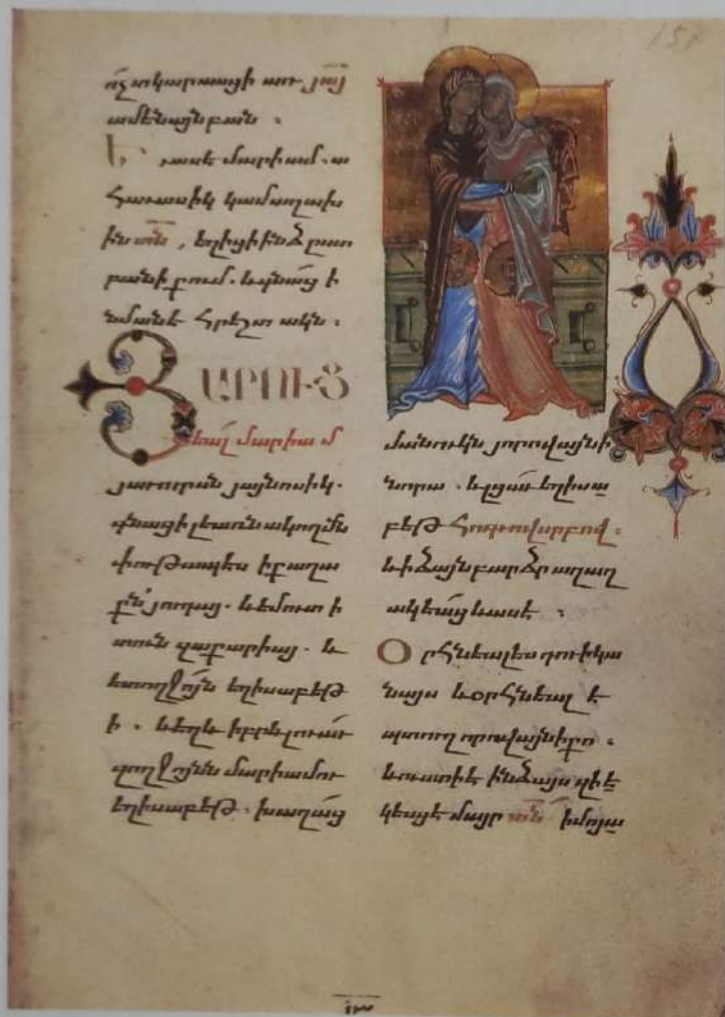 ո՛չ տկարասցի առ յա͞յ
ամենայն բան ։
Եւ ասէ մարիամ. ա
հաւասիկ կամ աղախ
ին տ͞ն, եղիցի ինձ ըստ
բանի քում. և գնաց ի
նմանէ հրեշտակն ։
ՅԱՐՈՒՑ
եալ մարիամ
յաւուրսն յայնոսիկ.
գնաց ի լեառնակողմն
փութապէս ի քաղա
քն յուդայ. և եմուտ ի
տուն զաքարիայ. և
ետ ողջոյն եղիսաբեթ
ի . և եղև իբրև լուաւ
զողջոյնն մարիամու
եղիսաբեթ. խաղաց
մանուկն յորովայնի
նորա . և լցաւ եղիսա
բեթ հոգւովսրբով ։
և ի ձայն բարձր աղաղ
ակեաց և ասէ ։
Օրհնեալ ես դու ի կա
նայս և օրհնեալ է
պտուղ որովայնի քո ։
և ուստի է ինձ այս զի ե
կեսցէ մայր տ͞ն իմոյ ա
157